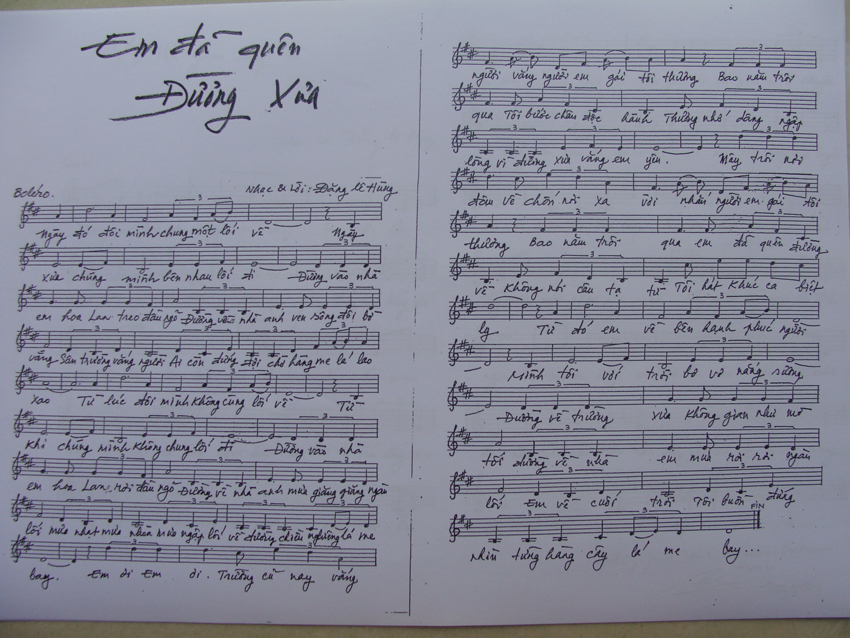 Em đã quên
Đường Xưa
Boléro.
Nhạc & Lời : Đặng Lê Hùng
Ngày đó đôi mình chung một lối về Ngày
xưa chúng mình bên nhau lối đi Đường vào nhà
em hoa Lan treo đầu ngõ Đường vào nhà anh ven sông đôi bờ
vắng Sân trường vắng người Ai còn đứng đợi chờ hàng me lá lao
xao Từ lúc đôi mình không cùng lối về Từ
khi chúng mình không chung lối đi Đường vào nhà
em hoa Lan rời đầu ngõ Đường về nhà anh mưa giăng giăng ngàn
lối mưa nhạt mưa nhòa mưa ngập lối về đường chiều nghiêng lá me
bay. Em ơi Em ơi. Trường cũ nay vắng
người vắng người em gái tôi thương Bao năm trôi
qua Tôi bước chân độc hành Thương nhớ dâng ngập
lòng vì đường xưa vắng em yêu. Mây trôi nơi
đâu về chốn nơi xa với nhắn người em gái tôi
thương Bao năm trôi qua em đã quên đường
về Không nói câu tạ từ Tôi hát khúc ca biệt
ly Từ đó em về bên hạnh phúc người
Mình tôi với trời bơ vơ nắng sương
Đường về trường xưa không gian như mơ
tối đường về nhà em mưa rơi rơi ngàn
lối Em về cuối trời Tôi buồn đứng
FIN
nhìn từng hàng cây lá me bay...